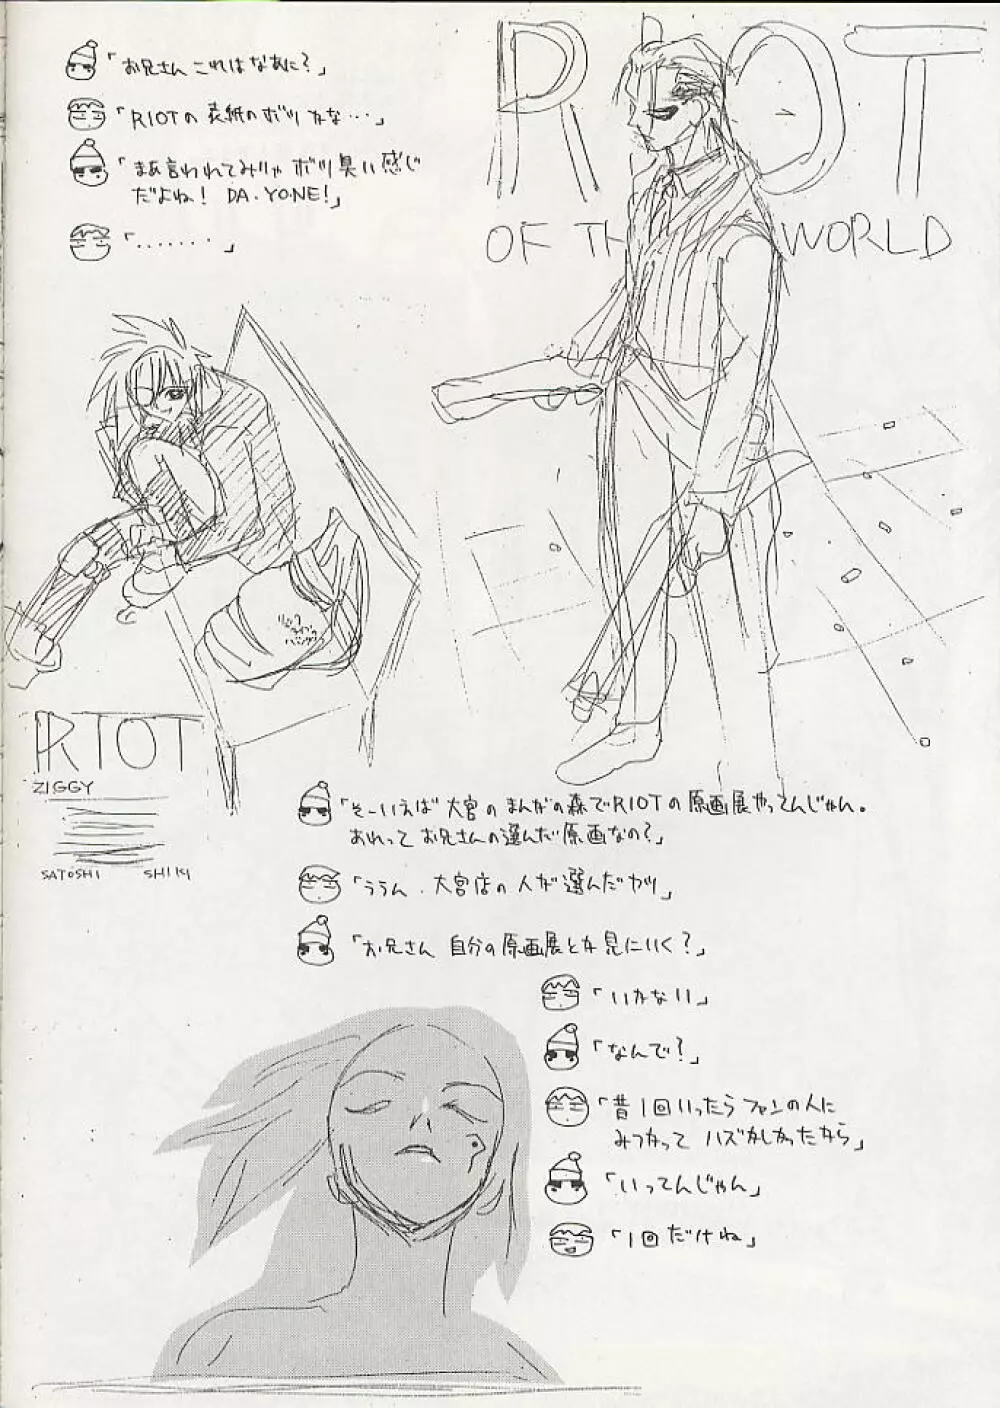 「お兄さん これは なあに?」
「RIOTの 表紙の ボツ かな…」
「まあ言われてみりゃ ボツ 臭い 感じ
だよね! DA.YONE!」
「.......」
RIOT
OF TH WORLD
RIOT
ZIGGY
SATOSHI SHIKI
「そーいえば 大宮の まんがの森で RIOTの 原画展やってんじゃん。
あれって お兄さんの選んだ 原画なの?」
「ううん. 大宮店の 人が 選んだヤツ」
「お兄さん 自分の原画展とか 見にいく?」
「いかない」
「なんで?」
「昔 1回いったら ファンの人に
みつかって ハズかしかったから」
「いってんじゃん」
「1回 だけね」